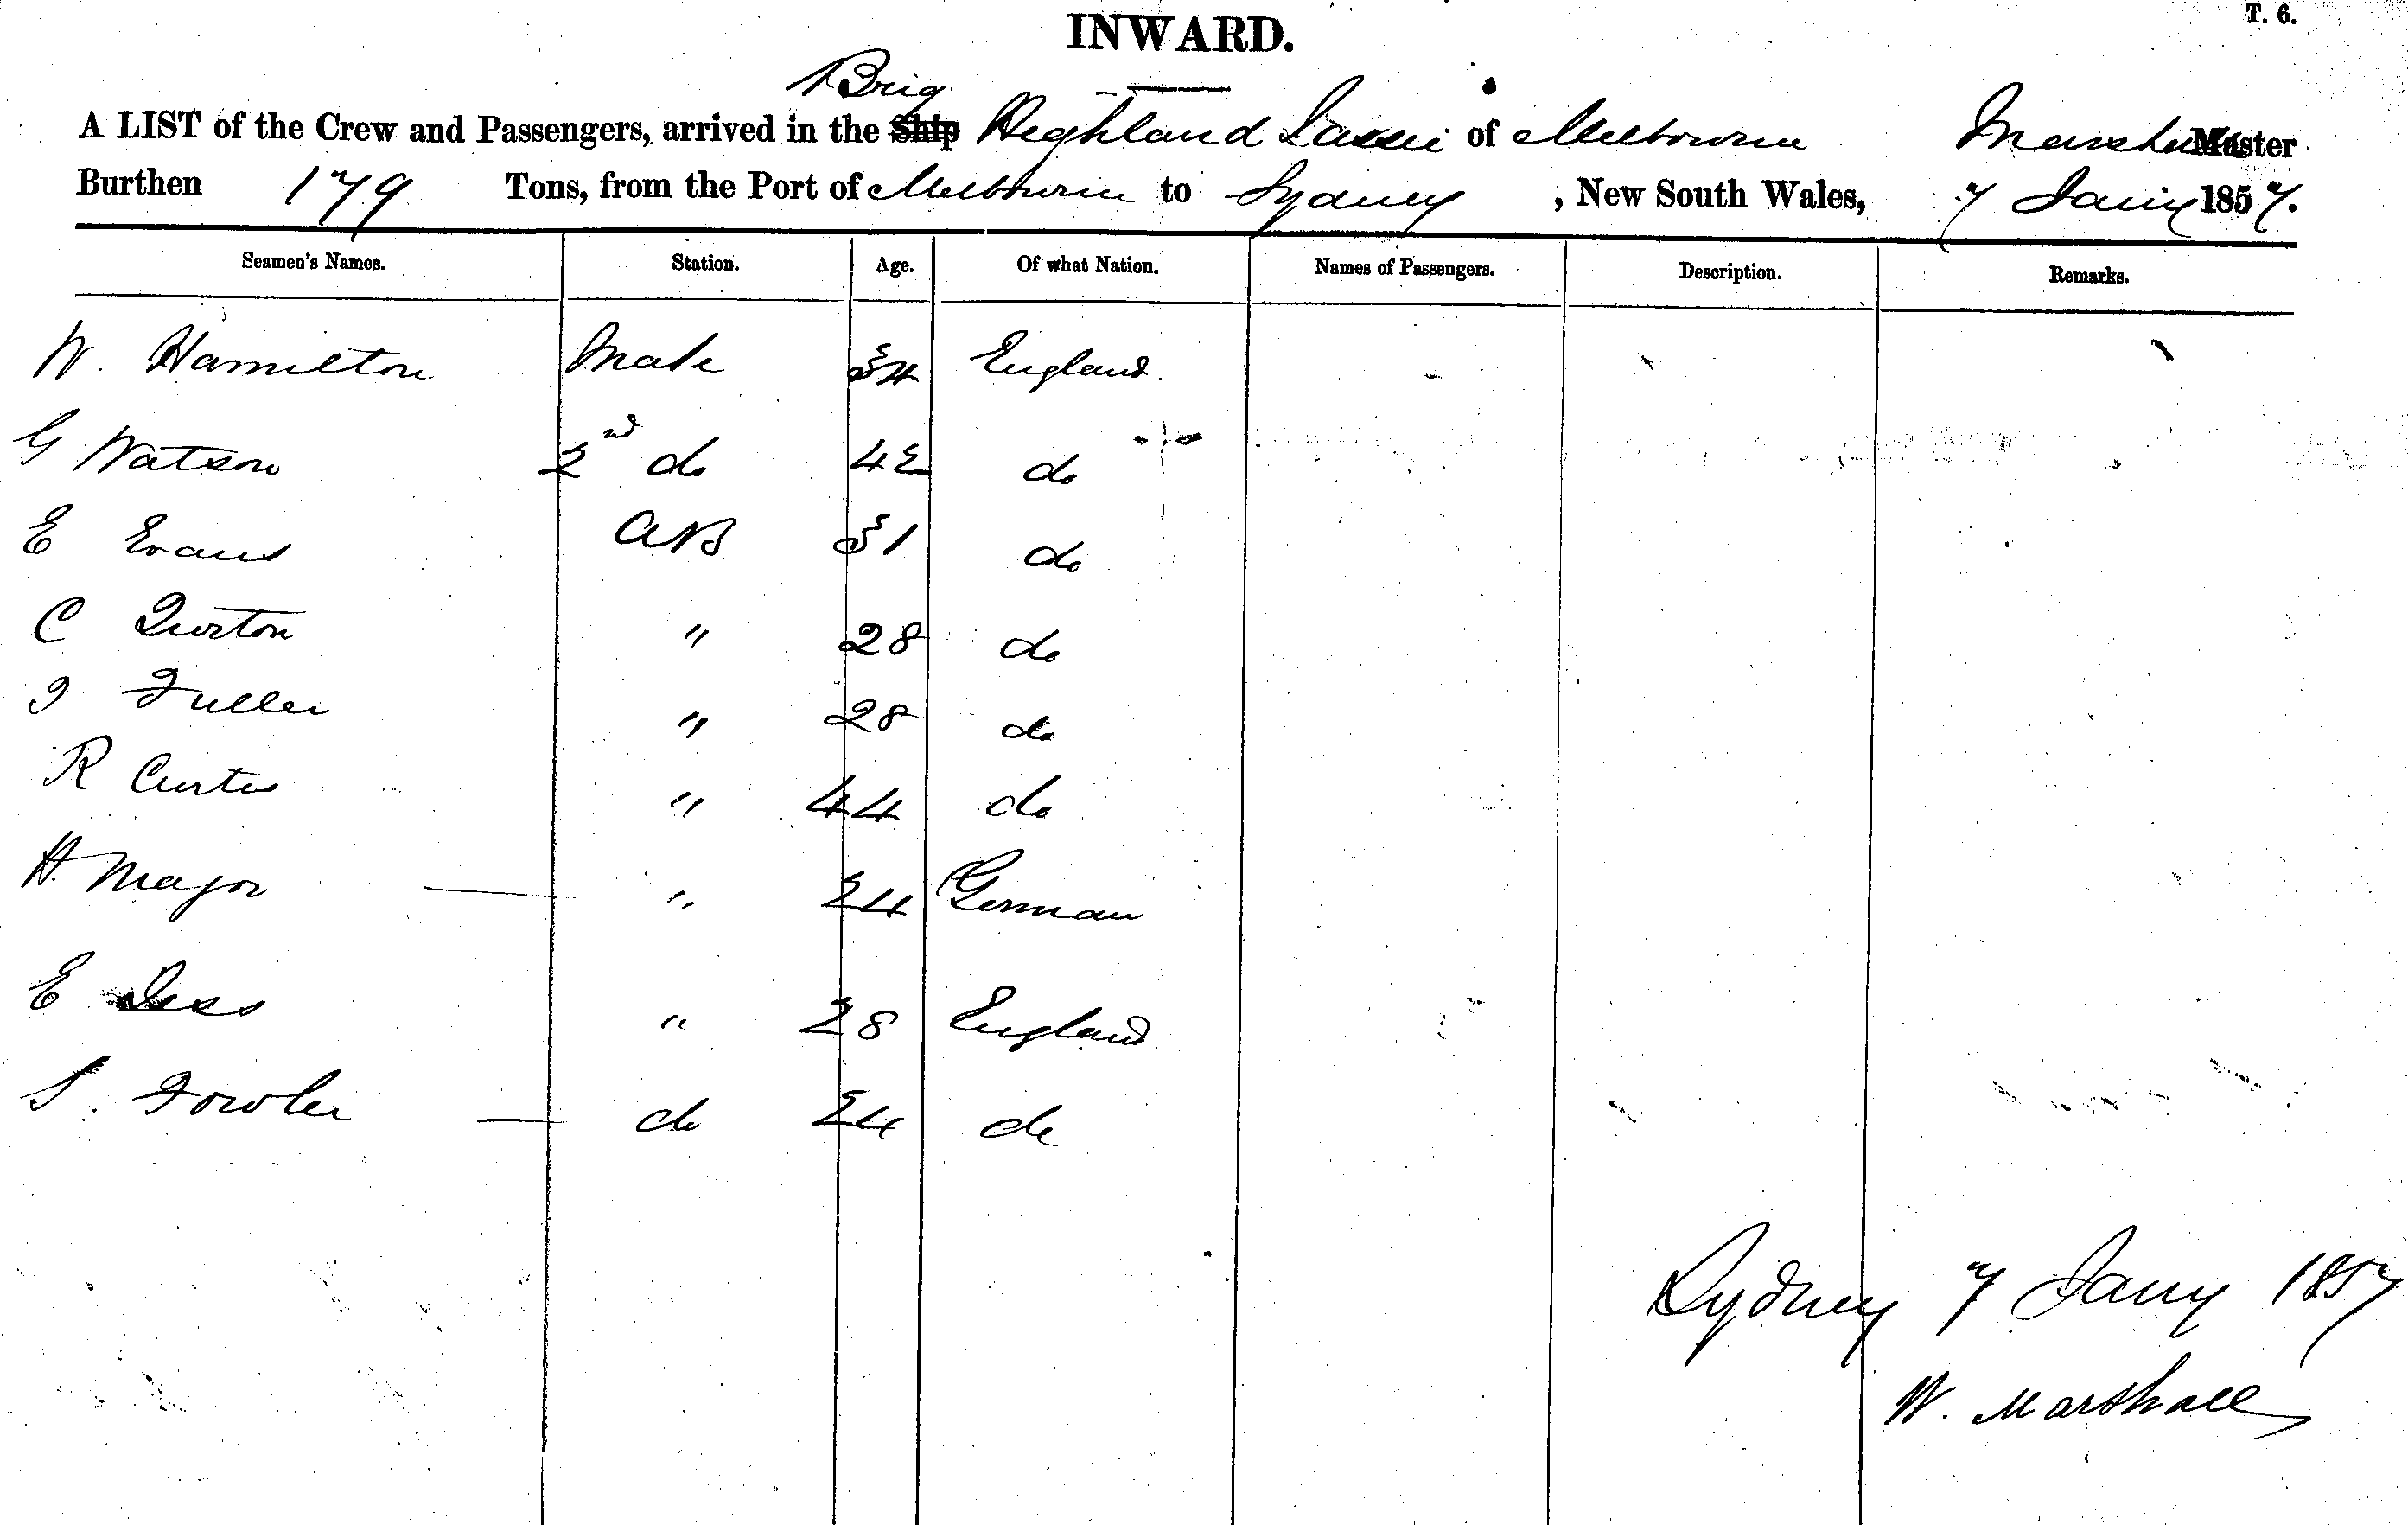 T. 6.
INWARD.
Brig
A LIST of the Crew and Passengers, arrived in the Ship Highland Lassie of Melbourne Marshall Master
Burthen 179 Tons, from the Port of Melbourne to Sydney , New South Wales, 7 Jany 1857.
Seamen's Names. Station. Age. Of what Nation. Names of Passengers. Description. Remarks.
W. Hamilton Mate 34 England
G Watson 2nd do 42 do
E Evans AB 31 do
C " 28 do
J Fuller " 28 do
R Curtis " 44 do
H. Major " 24 German
E " 28 England
S. Fowler do 24 do
Sydney 7 Jany 1857
W. Marshall